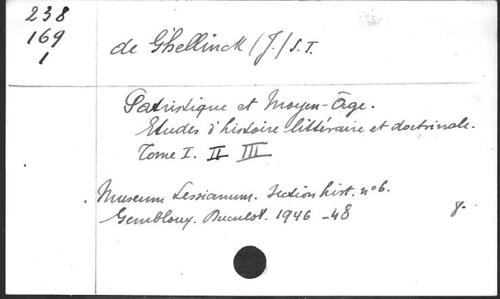 238
169
1
de Ghellinck (J.) S.T.
Patristique et Moyen-Âge.
Etudes d'histoire littéraire et doctrinale.
Tome I. II III
Museum Lessianum. Section hist. n° 6.
Gembloux. Duculot. 1946 -48 8.